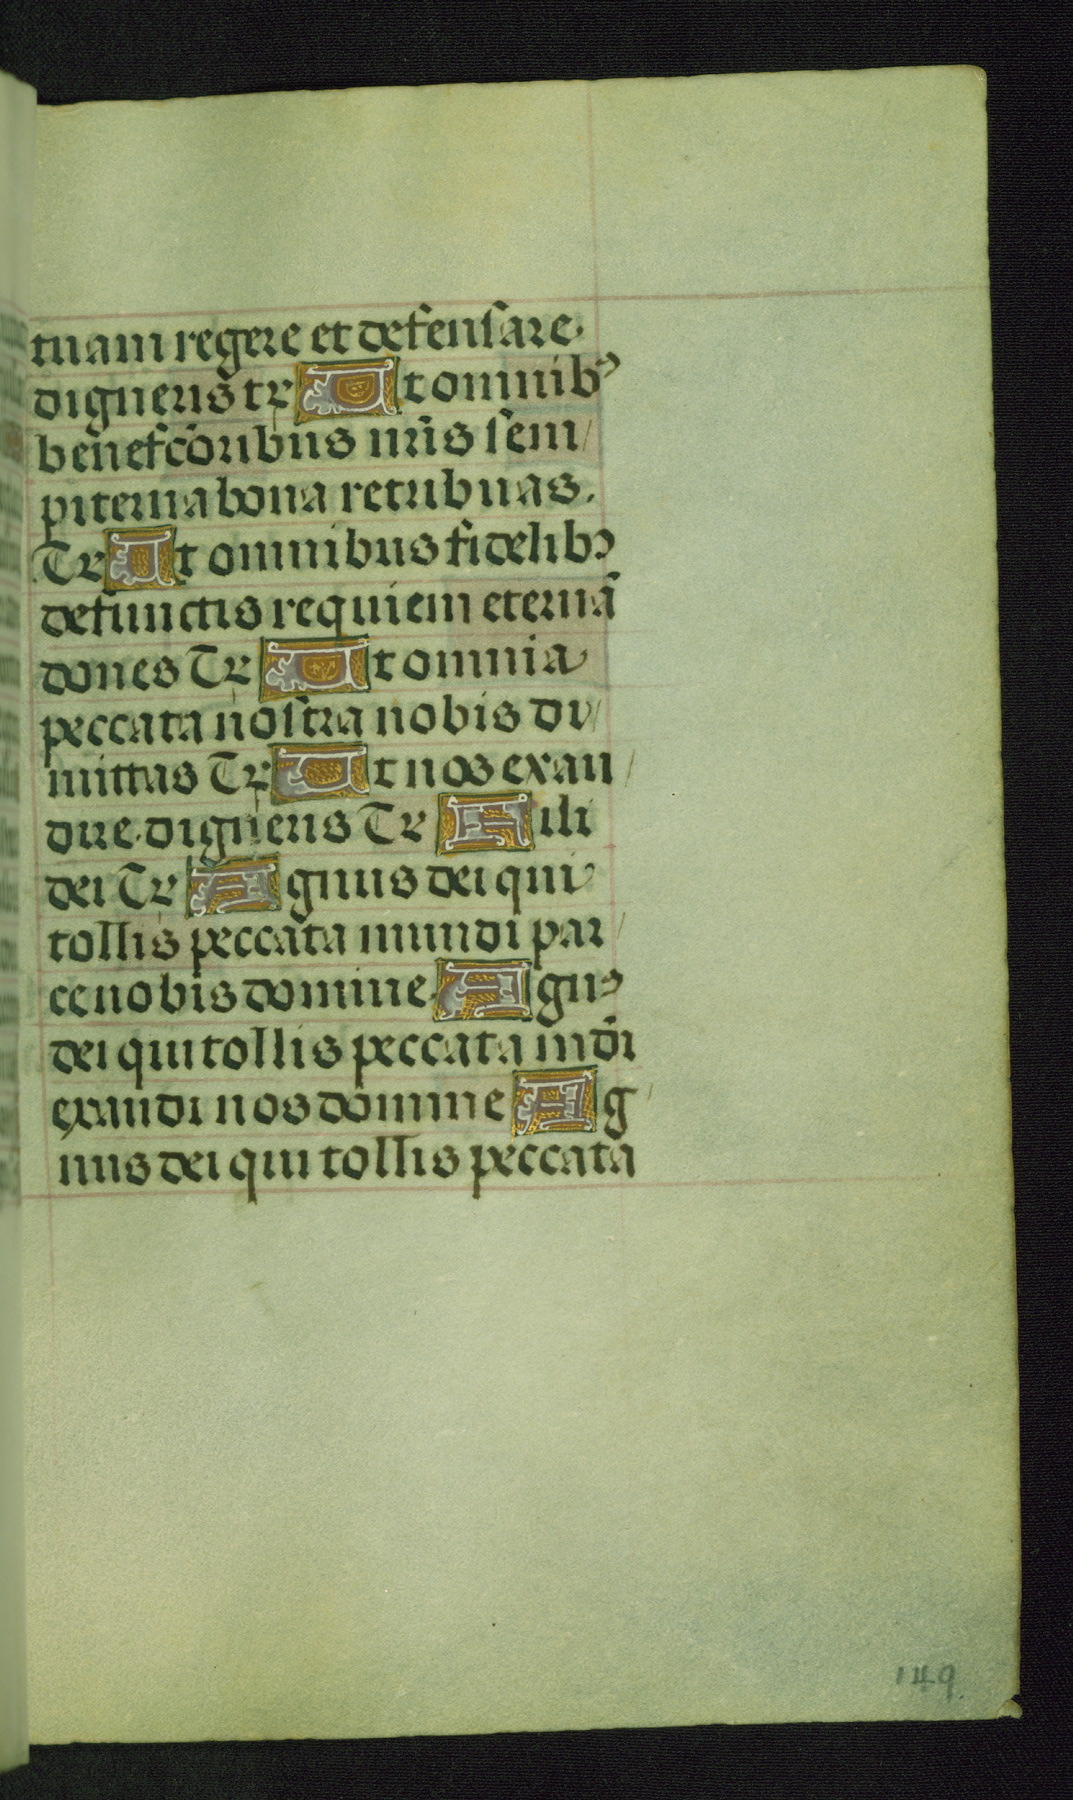 tuam regere et defensare
digneris tr Ut omnibꝰ
benefc̄oribus nr̄is sem/
piterna bona retribuas.
Tr Ut omnibus fidelibꝫ
defunctis requiem eternā
dones Tr Ut omnia
peccata nostra nobis di/
mittas Tr Ut nos exau/
dire digneris Tr Fili
dei Tr Agnus dei qui
tollis peccata mundi par/
ce nobis domine Agnꝰ
dei qui tollis peccata mūdi
exaudi nos domine Ag/
nus dei qui tollis peccata
149